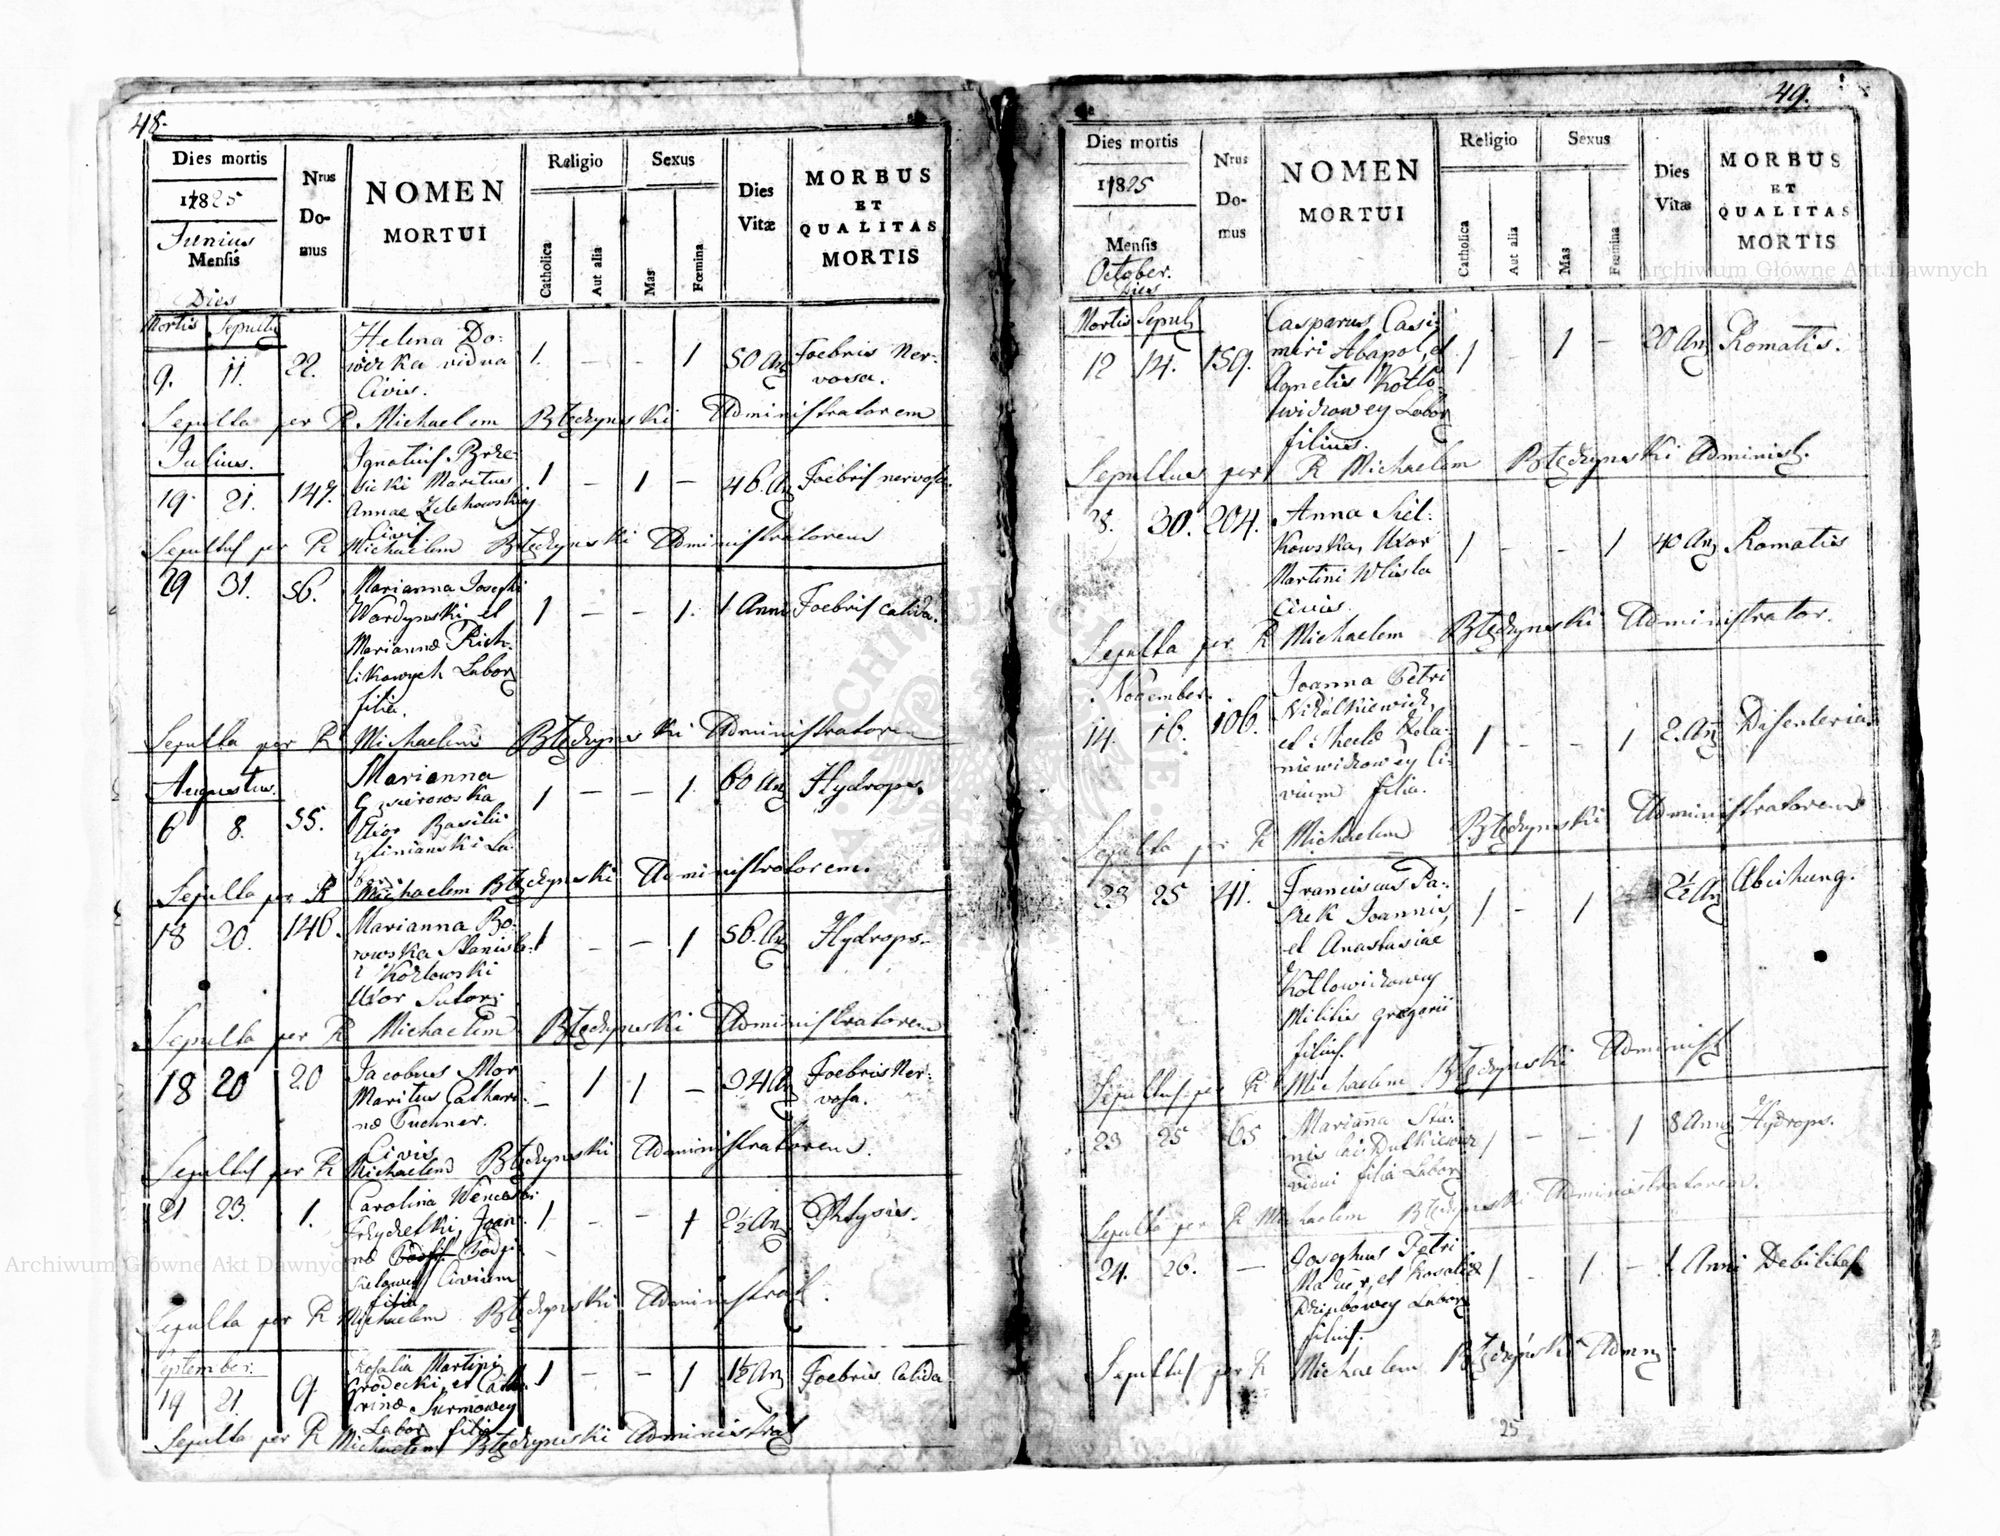 48.
Dies mortis
1825
Junius
Mensis
Dies
Nrus
Do-
mus
NOMEN
MORTUI
Religio
Catholica
Aut alia
Sexus
Mas
Fœmina
Dies
Vitæ
MORBUS
ET
QUALITAS
MORTIS
Mortis Sepultu
9. 11. 22. Helena Do:
wicka vidua
Civis.
1. – – 1 50 An Foebris Ner-
vosa.
Sepulta per R Michaelem Błędzynski Administratorem
Julius.
19 21. 147. Ignatius Brze-
bicki Maritus
Annae Zelehowskiey
Civis
1 – 1 – 46. An Foebris nervosa.
Sepultus per R Michaelem Błędzynski Administratorem
29 31. 56. Marianna Josephi
Wardynski et
Mariannæ Rich-
likowych Labor
filia.
1 – – 1. 1 Anni Foebris calida.
Sepulta per R Michaelem Błędzynski Administratorem
Augustus.
6 8. 55. Marianna
Basilii
La
bor.
1 – – 1. 60 An Hydrops.
Sepulta per R Michaelem Błędzynski Administratorem.
18 20. 146. Marianna Bo-
rowska Stanisla:
i Kozłowski
Uxor Sutor
1 – – 1 56. An Hydrops.
Sepulta per R Michaelem Błędzynski Administratorem
18 20 20 Jacobus Mor
Maritus Cathari-
næ Tuchner.
Civis
– 1 1 – 34 An Foebris Ner:
vosa.
Sepultus per R Michaelem Błędzynski Administratorem.
21 23. 1. Carolina Wencesl:
Frydetki, Joan-
næ
Civium
filia
1 – – 1 2½ An Phtysis.
Sepulta per R Michaelem Błędzynski Administrat.
September.
19 21. 9. Rosalia Martini
Grodecki, et Catha
rinæ Surmowey
Labor filia
1 – – 1 1½ An Foebris Calida
Sepulta per R Michaelem Błędzynski Administrat
49.
Dies mortis
1825
Mensis
October.
Dies
Nrus
Do-
mus
NOMEN
MORTUI
Religio
Catholica
Aut alia
Sexus
Mas
Fœmina
Dies
Vitæ
MORBUS
ET
QUALITAS
MORTIS
Mortis Sepul
12 14. 159. Casparus Casi
miri Abapol, et
Agnetis Kotło-
widzowey Labor
filius.
1 – 1 – 20 An Romatis.
Sepultus per R Michaelem Błędzynski Administ.
28. 30. 204. Anna Siel-
kowska, Uxor
Martini Wlisla
Civis.
1 – – 1 40 An Romatis
Sepulta per R Michaelem Błędzynski Administrator.
November.
14. 16. 106. Joanna Petri
Mikulkiewicz,
et Theclæ Kola-
niewidzowey Ci-
vium filia.
1 – – 1 2. An Disenteria.
Sepulta per R Michaelem Błędzynski Administratorem
23 25 41. Franciscus Pa-
szek Joannis,
et Anastasiae
Kotłowidzowey
Militis gregarii
filius.
1 – 1 2½ An Abcihung.
Sepultus per R Michaelem Błędzynski Administ.
23 25 65 Marianna Sta-
nislai Dutkiewicz
vicini filia Labor
1 – – 1 8 Ann Hydrops.
Sepulta per R Michaelem Błędzynski Administratorem.
24. 26. – Josephus Petri
Madur, et Rosaliæ
Dziubowey Labor
filius.
1 – 1 – 1 Anni Debilitas
Sepultus per R Michaelem Błędzynski Admn
25
Archiwum Główne Akt Dawnych
Archiwum Główne Akt Dawnych